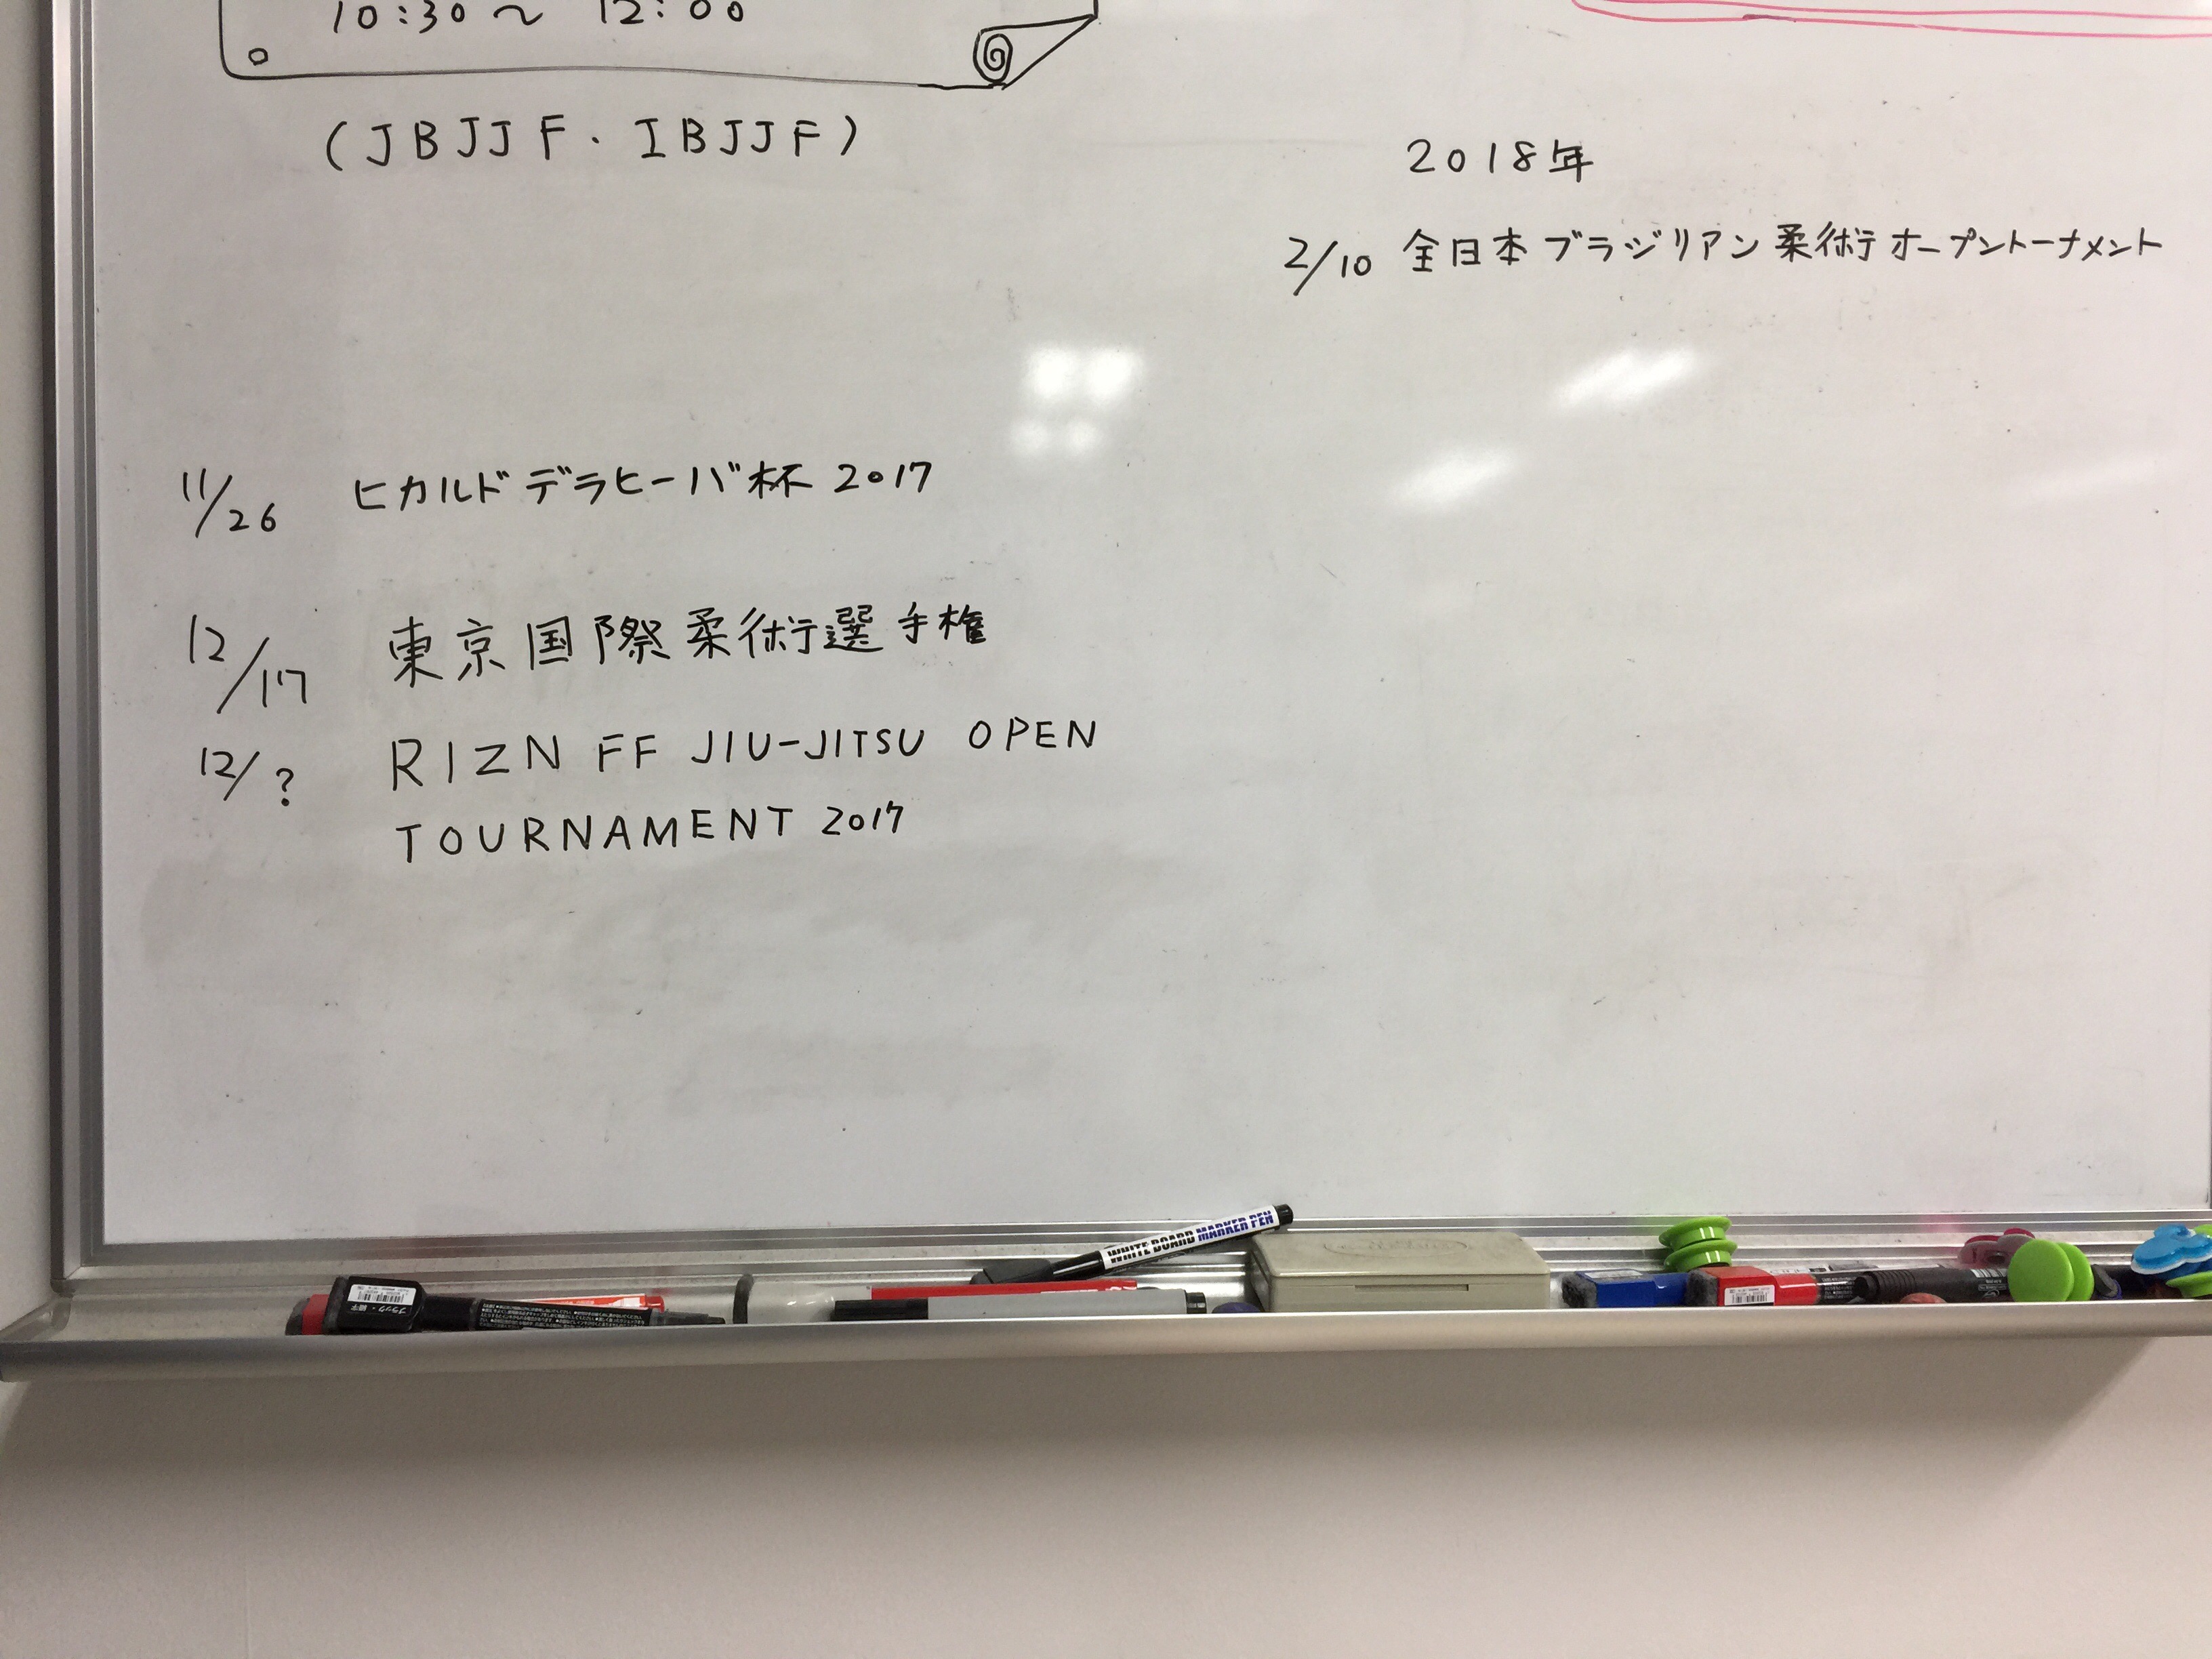 10:30～12:00
(JBJJF・IBJJF)
11/26 ヒカルドデラヒーバ杯 2017
12/17 東京国際柔術選手権
12/? RIZN FF JIU-JITSU OPEN
TOURNAMENT 2017
2018年
2/10 全日本ブラジリアン柔術オープントーナメント
WHITE BOARD MARKER PEN